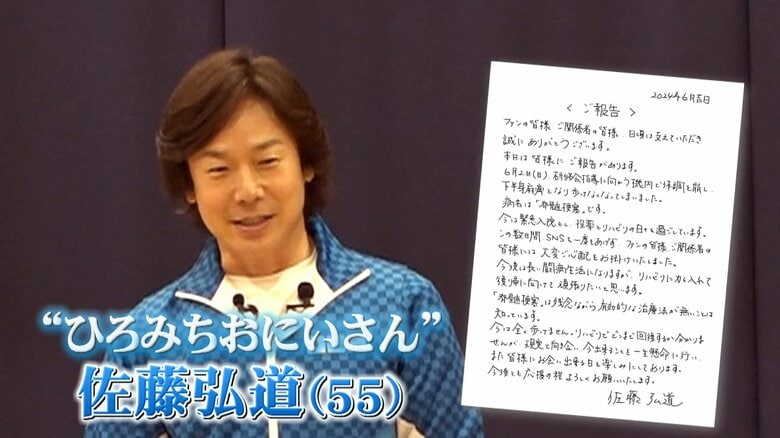 “ひろみちおにいさん”
佐藤弘道(55)
2024年6月吉日
< ご報告 >
ファンの皆様、ご関係者の皆様、日頃は支えていただき
誠にありがとうございます。
本日は皆様にご報告があります。
6月2日(日)、研修会指導に向かう機内で体調を崩し、
下半身麻痺となり歩けなくなってしまいました。
病名は「脊髄梗塞」です。
今は緊急入院をし、投薬とリハビリの日々を過ごしています。
この数日間、SNSを一度もあげず、ファンの皆様、ご関係者の
皆様には大変ご心配をお掛けいたしました。
今後は長い闘病生活になりますが、リハビリに力を入れて
復帰に向けて頑張りたいと思います。
「脊髄梗塞」は残念ながら有効的な治療法が無いことは
知っています。
今は全く歩けません。リハビリでどこまで回復するか分かりま
せんが、現実と向き合い、今出来ることを一生懸命に行い、
また皆様にお会い出来る日を楽しみにしております。
今後とも応援の程よろしくお願いいたします。
佐藤 弘道